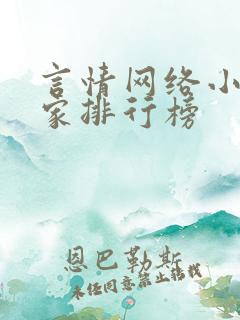 言情网络小
家排行榜
恩巴勒斯
未经同意禁止转载